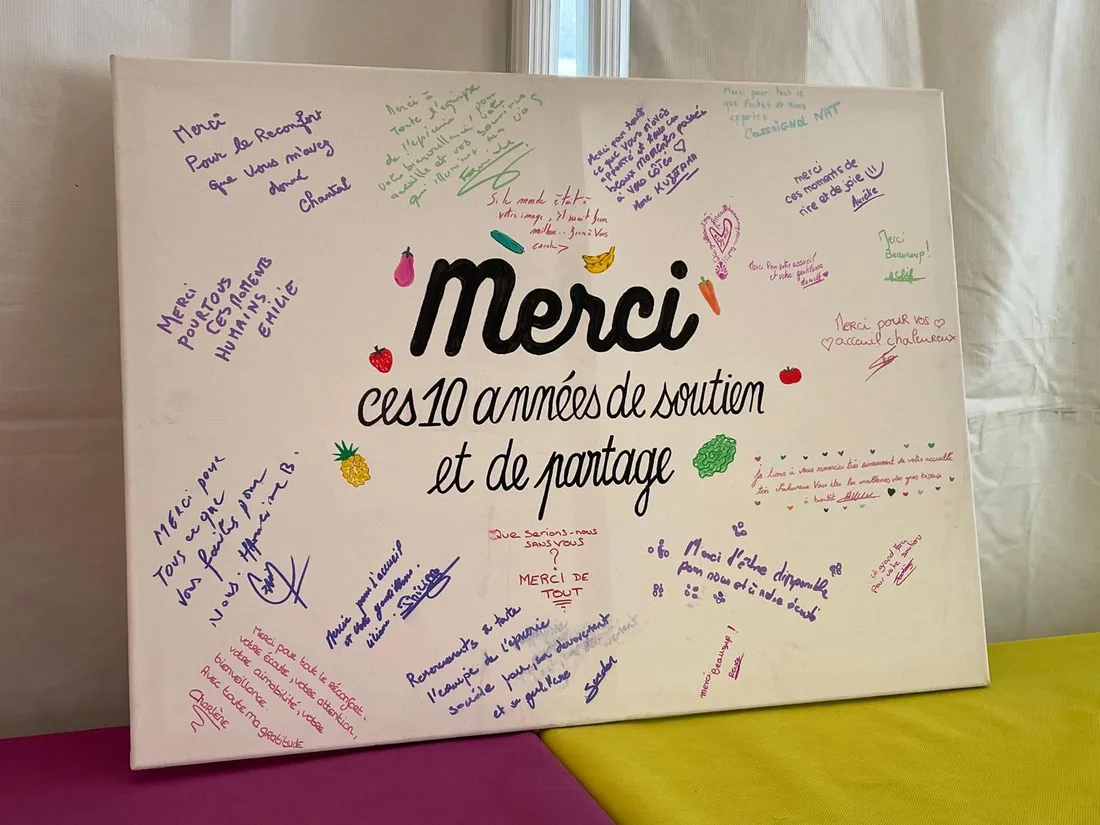 Merci
Pour le Reconfort
que vous m'avez
donné
Chantal
Merci à
Toute l'équipe
de l'épicerie, pour
votre bienveillance, votre
accueille et vos sourires
qui illumine nos vies
Merci pour tout
ce que vous m'avez
apporté et tous ces
beaux moments passés
à vos côtés ♡
Mme
Merci pour tout ce
que faites et nous
apportez
CASSAIGNOL NAT
merci
ces moments de
rire et de joie
Aurélie
Si le monde était à
votre image, il serait bien
meilleur... Grâce à Vous
Merci Pour votre accueil
et votre gentillesse
Merci
Beaucoup!
MERCI
POUR TOUS
CES MOMENTS
HUMAINS
EMILIE
Merci pour vos ♡
♡ acceuil chaleureux
Merci
ces 10 années de soutien
et de partage
MERCI pour
Tous ce que
vous faites pour
Nous.
je tiens à vous remercier très sincèrement de votre accueille
très chaleureux Vous êtes les meilleures des gros bisoux
à bientôt
Que serions-nous
SANS VOUS
?
MERCI DE
TOUT
Merci d'être disponible
pour nous et à notre écoute
un grand Merci
pour votre soutien
Merci pour l'accueil
et votre gentillesse.
Remerciements à toute
l'équipe de l'épicerie
sociale pour son dévouement
et sa gentillesse
Merci pour tout le réconfort,
votre écoute, votre attention,
votre aimabilité, votre
bienveillance.
Avec toute ma gratitude
Charlène
merci Beaucoup !